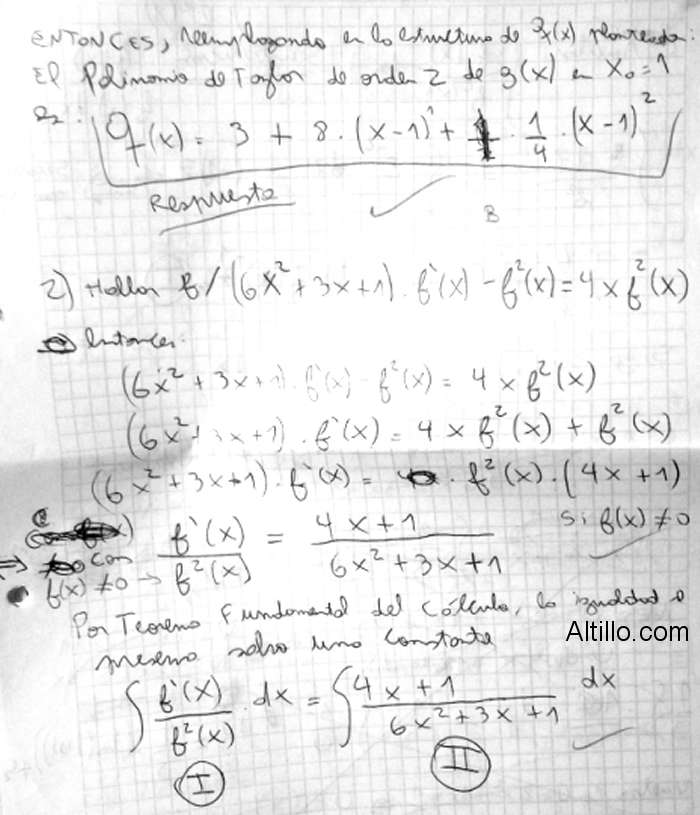 ENTONCES, reemplazando en la estructura de q(x) planteada:
El Polinomio de Taylor de orden 2 de g(x) en X₀=1
es:
q(x) = 3 + 8 · (x-1)¹ + · 1/4 · (x-1)²
Respuesta ✓
B
2) Hallar f / (6x² + 3x + 1) · f'(x) - f²(x) = 4x f²(x)
Entonces:
(6x² + 3x + 1) · f'(x) - f²(x) = 4x f²(x)
(6x² + 3x + 1) · f'(x) = 4x f²(x) + f²(x)
(6x² + 3x + 1) · f'(x) = · f²(x) · (4x + 1)
Si f(x) ≠ 0
⇒ con f(x) ≠ 0 → f'(x)/f²(x) = (4x + 1)/(6x² + 3x + 1) ✓
Por Teorema Fundamental del Cálculo, la igualdad se
Altillo.com
salvo una constante
∫ f'(x)/f²(x) · dx = ∫ (4x + 1)/(6x² + 3x + 1) dx ✓
I II